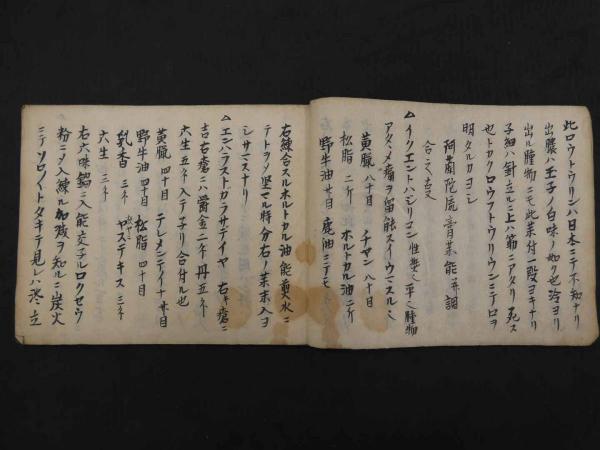 此ロウトウリンハ日本ニテ不知ナリ
出膿ハ玉子ノ白味ノ如ク也冷ヨリ
出ル腫物ニモ此薬付一段ヨキナリ
子細ハ針立ル上ハ筋ニアタリ死ス
也トカクロウフトウリウリンニテロヲ
明タルカヨシ
阿蘭陀流膏薬能并調
合之事
イクエントハジリコン 性 平ニ腫物
アタヽメ膿ヲ留能スイウミスルニ
黄臘 八十目 チヤン 八十目
松脂 二斤 ホルトカル油 二斤
野牛油 廿目 鹿油ニテモ
右練合スルホルトカル油能煎水ニ
テトヲメ堅マル時分右ノ薬末入ヨ
シサマスナリ
エンハラストカラサテイヤ 右ノ瘡ニ
吉右瘡ニハ爵金二 丹五
六生五 入テ子リ合付ル也
黄臘 四十目 テレメンテイナ 廿目
野牛油 四十目 松脂 四十目
乳香 三 ヤステキス 三
六生 三
右六味鍋ニ入能交チルロクセウ
粉ニメ入練ル加残ヲ知ルニ炭火
ニテソロソロトタキテ見レハ泡立